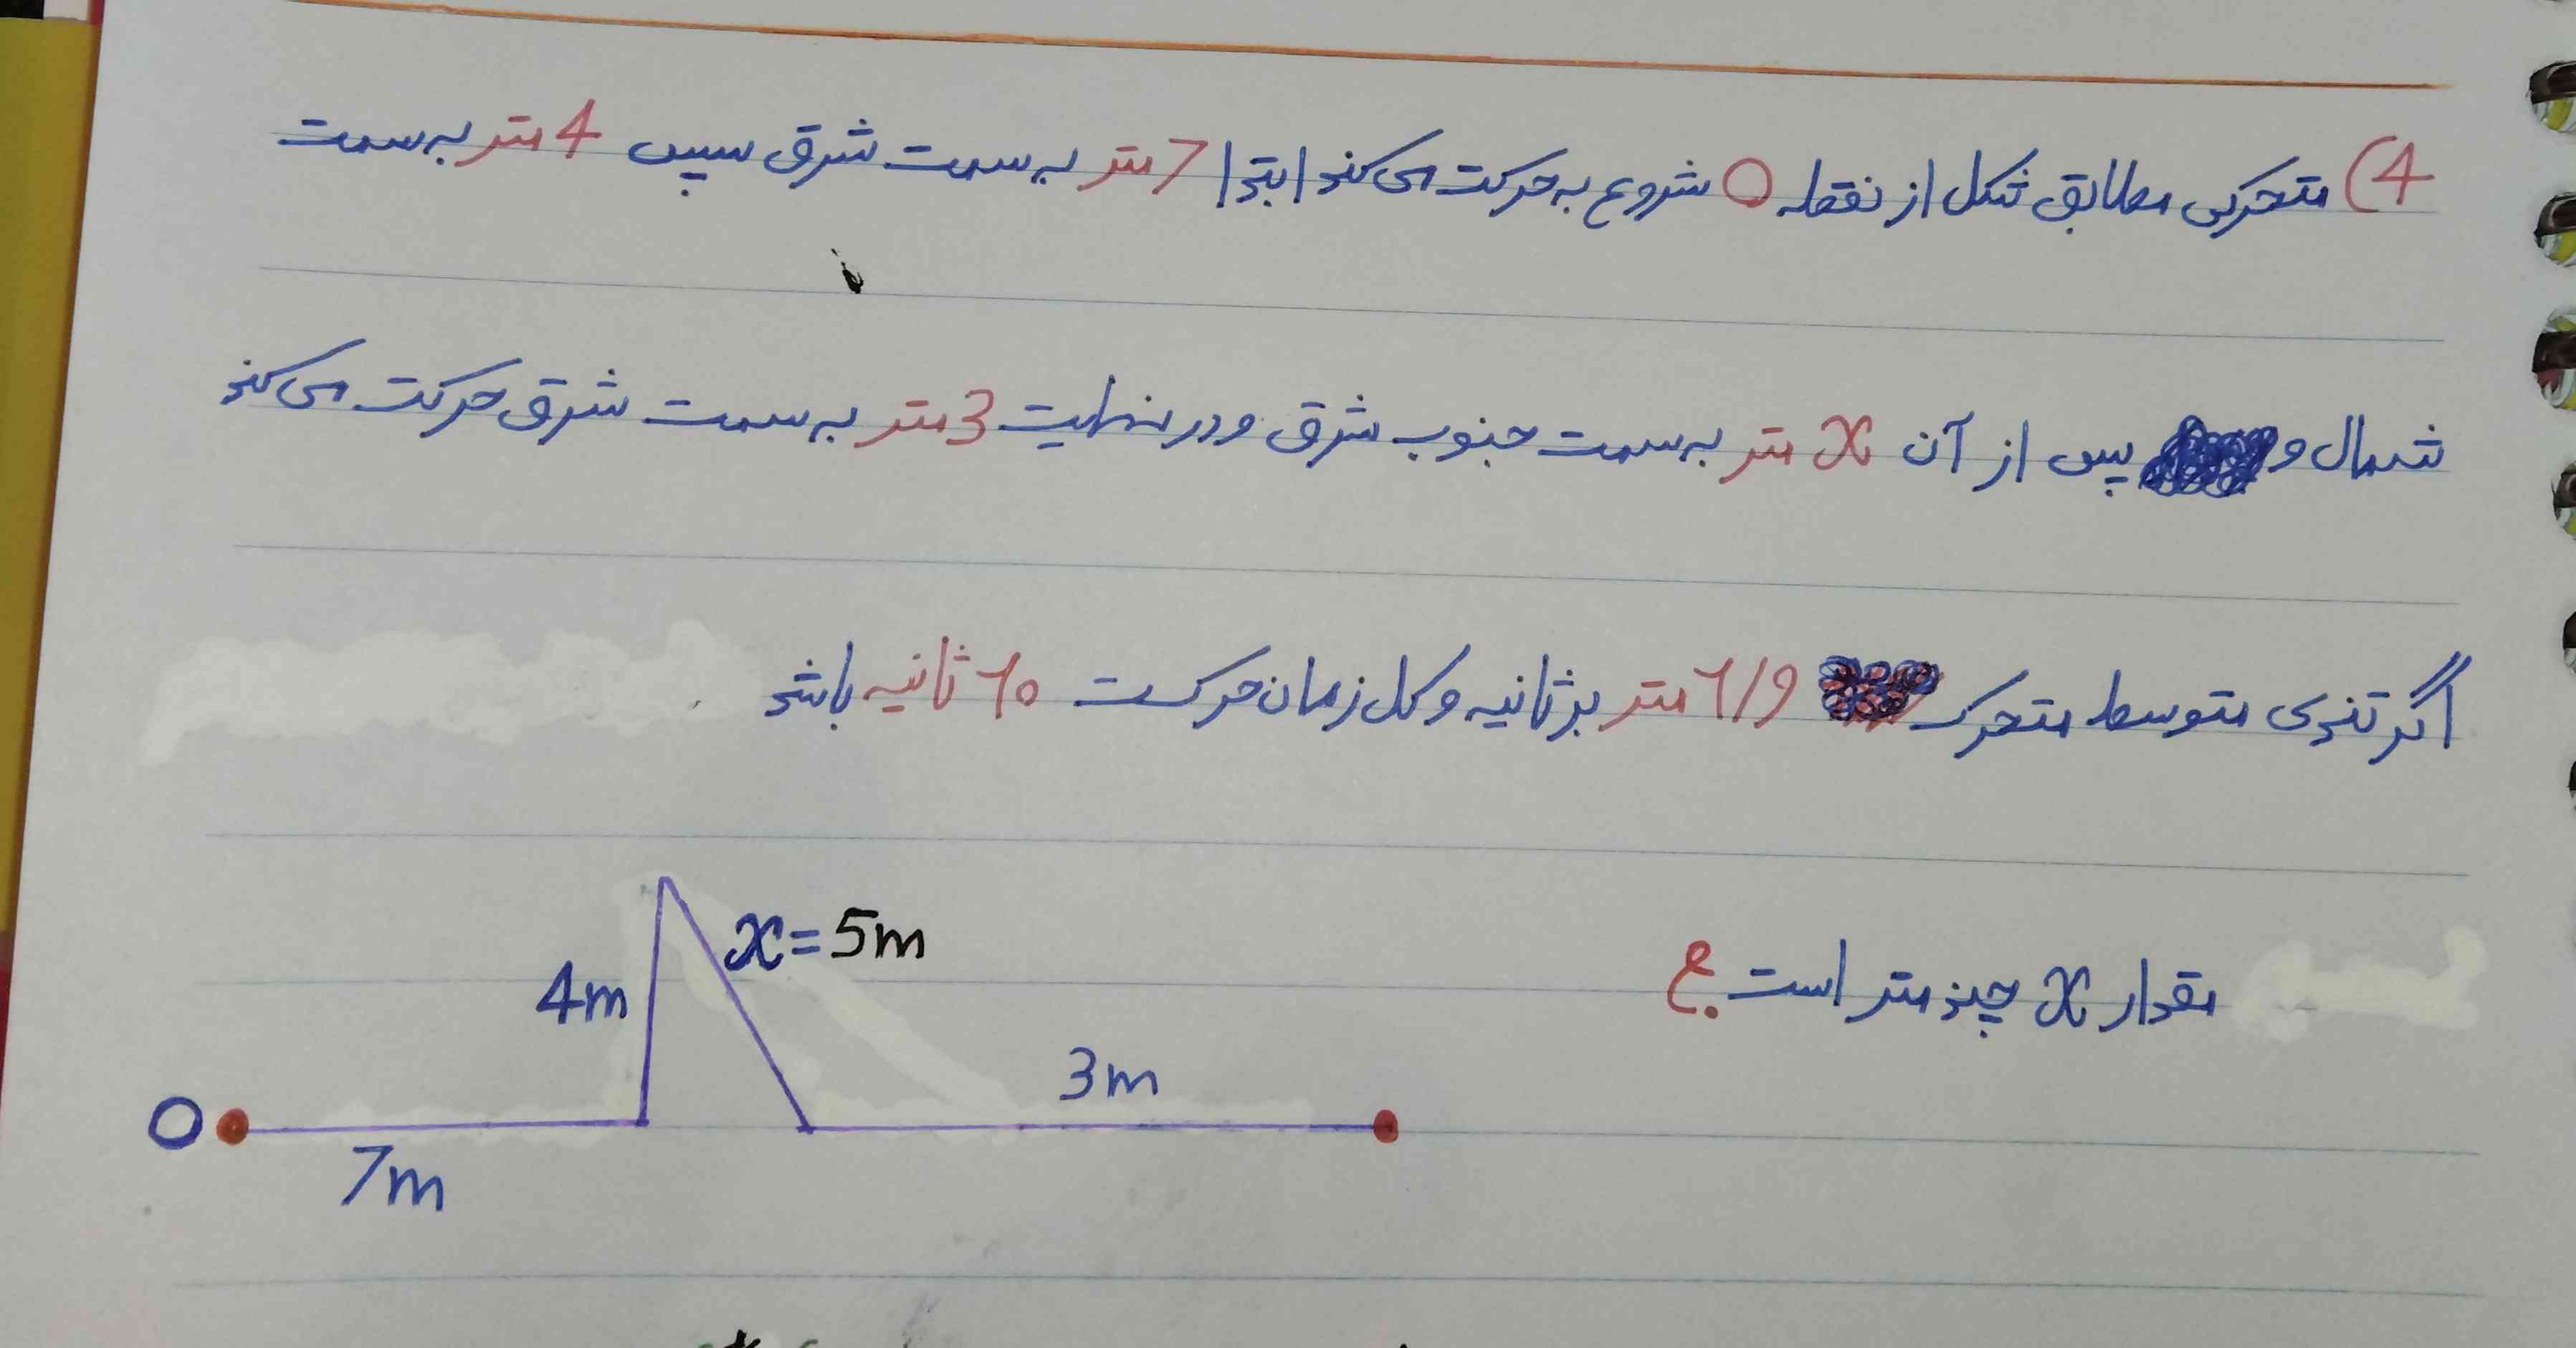 4) متحرکی مطابق شکل از نقطه O شروع به حرکت می‌کند ابتدا 7 متر به سمت شرق سپس 4 متر به سمت
شمال و پس از آن x متر به سمت جنوب شرق و در نهایت 3 متر به سمت شرق حرکت می‌کند
اگر تندی متوسط متحرک 1/9 متر بر ثانیه و کل زمان حرکت 10 ثانیه باشد
مقدار x چند متر است؟
x=5m
4m
3m
O
7m